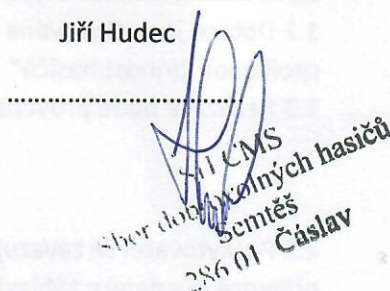 Jiří Hudec
......................................
SH ČMS
Sbor dobrovolných hasičů
Semtěš
286 01 Čáslav